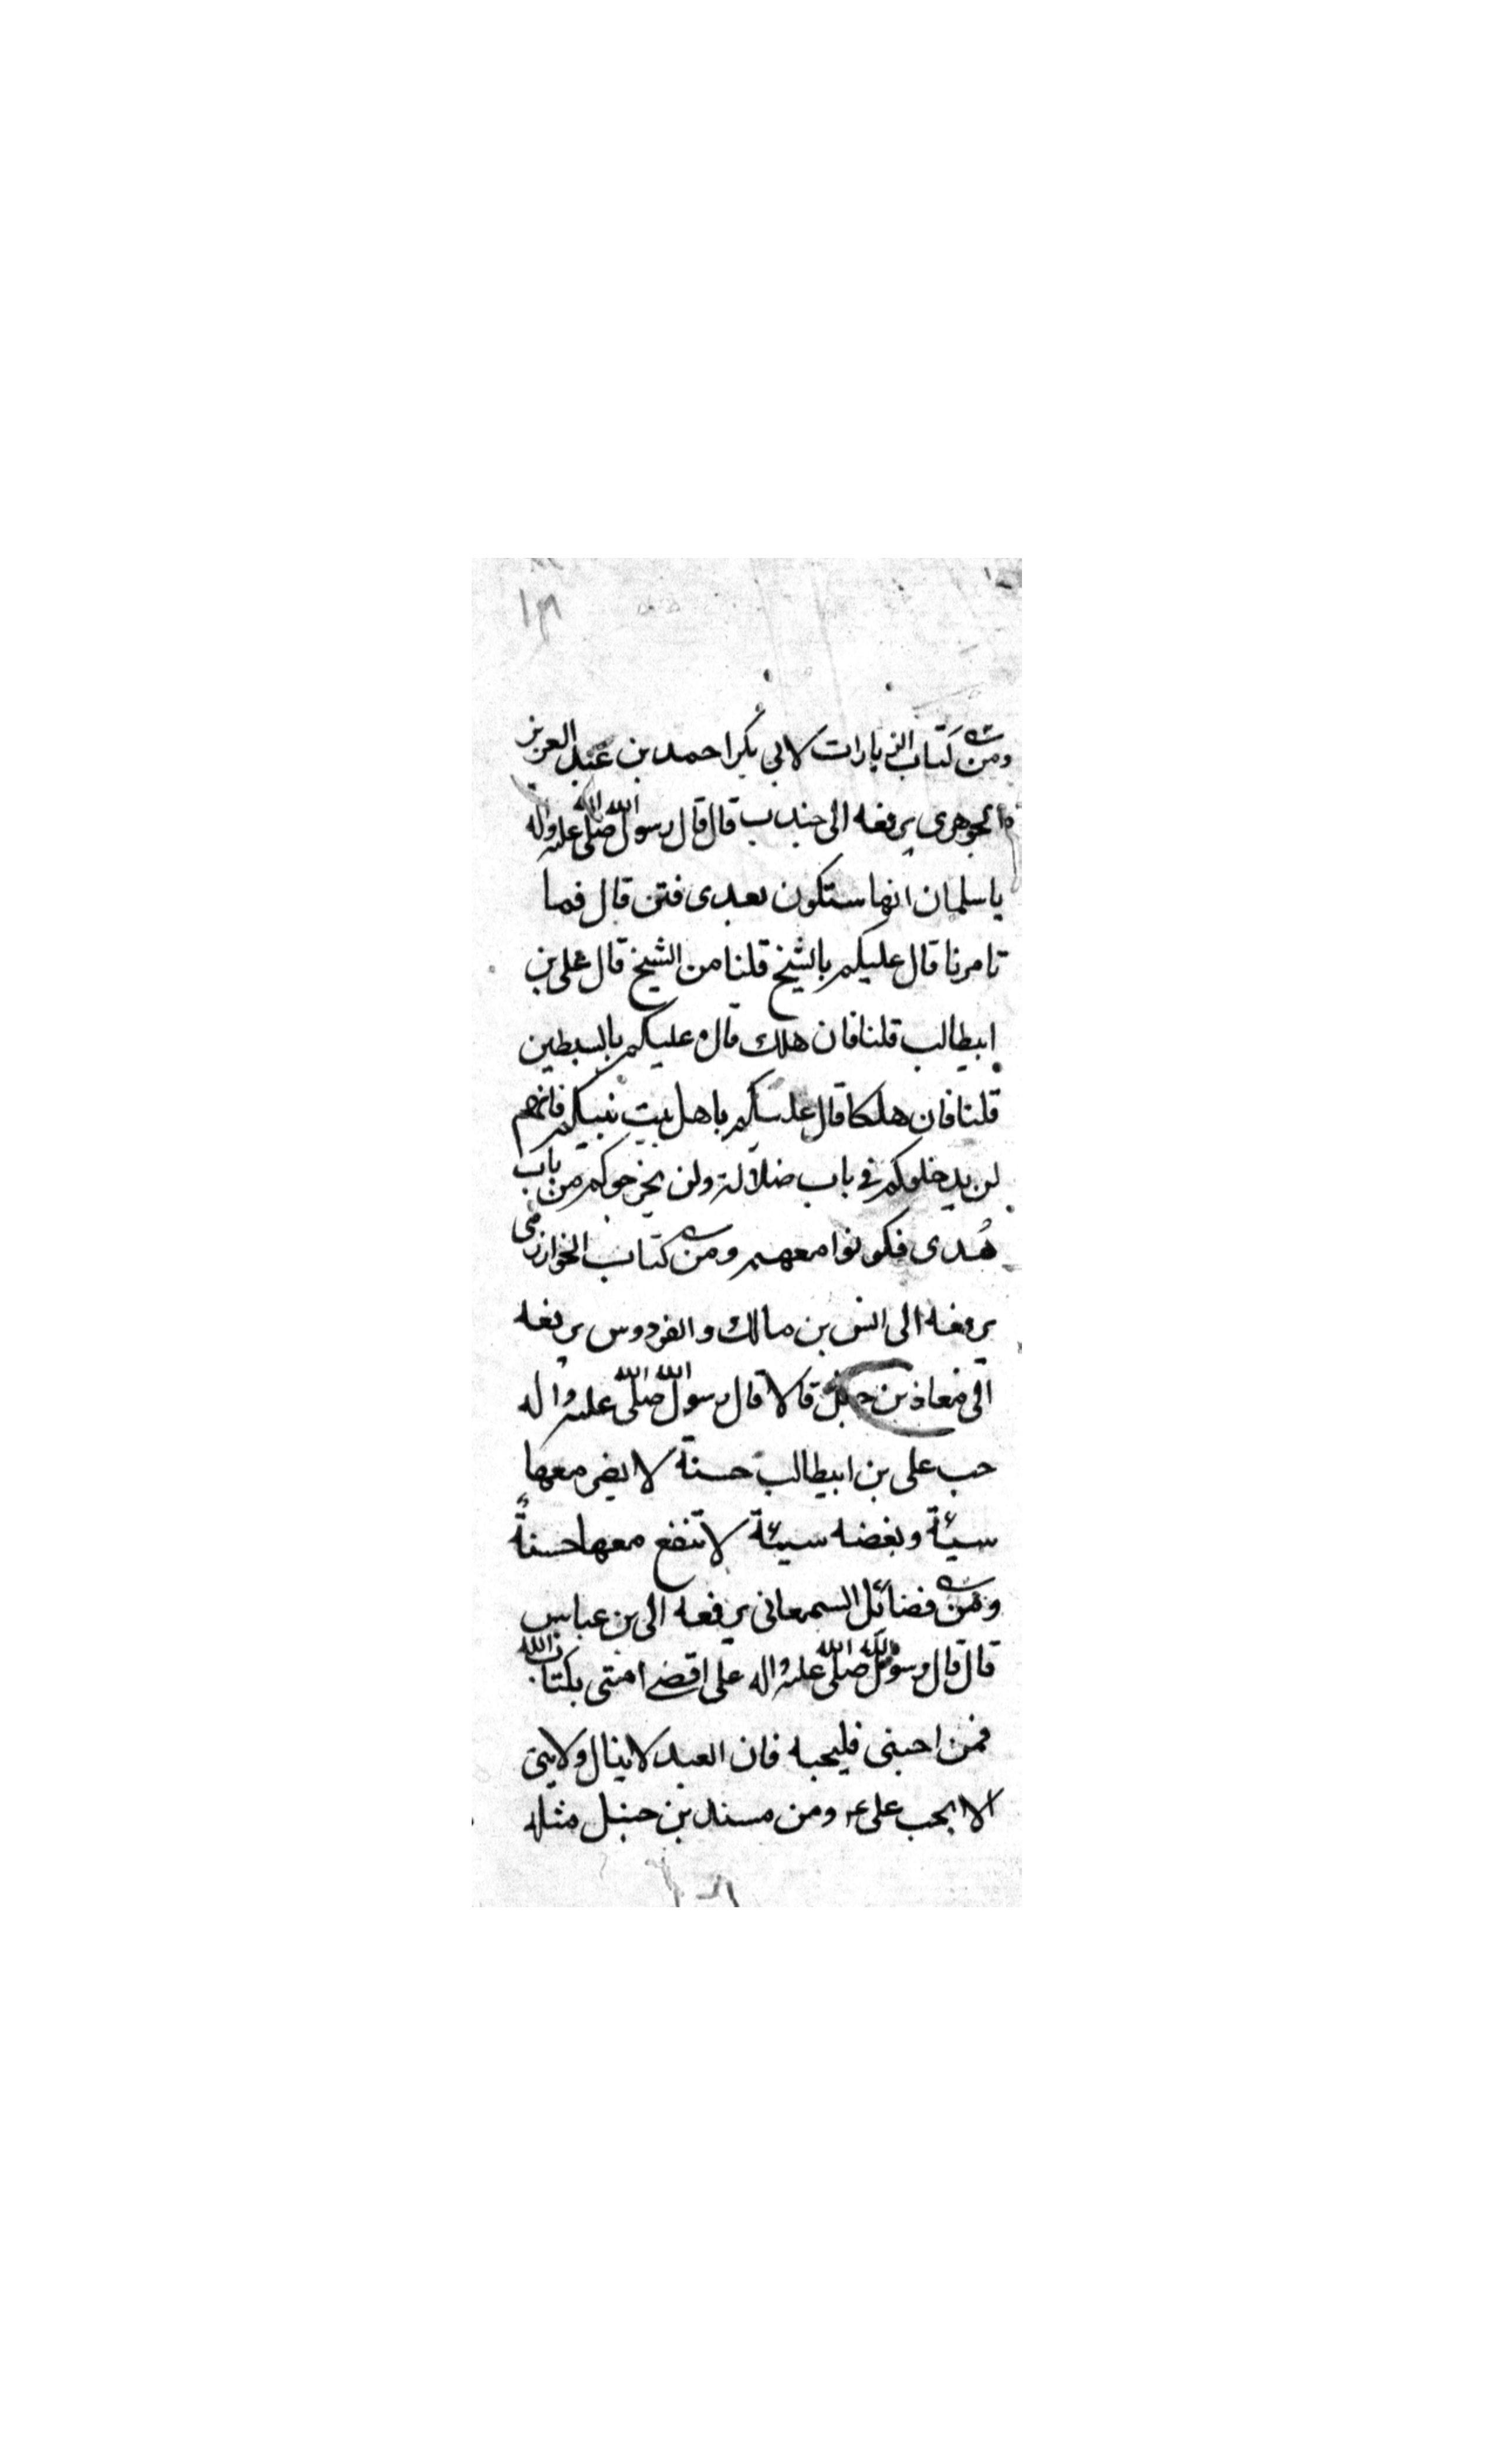 ومن كتاب الزيارات لابي بكر احمد بن عبد العزيز
الجوهرى يرفعه الى جندب قال قال رسول الله صلى الله عليه واله
يا سلمان انها ستكون بعدى فتن قال فما
تامرنا قال عليكم بالشيخ قلنا من الشيخ قال على بن
ابيطالب قلنا فان هلك قال عليكم بالسبطين
قلنا فان هلكا قال عليكم باهل بيت نبيكم فانهم
لن يدخلوكم في باب ضلالة ولن يخرجوكم من باب
هُدى فكونوا معهم ومن كتاب الخوارزمى
يرفعه الى انس بن مالك والفردوس يرفعه
الى معاذ بن جبل قالا قال رسول الله صلى الله عليه واله
حب على بن ابيطالب حسنة لا يضر معها
سيئة وبغضه سيئة لا تنفع معها حسنةً
ومن فضائل السمعانى يرفعه الى بن عباس
قال قال رسول الله صلى الله عليه واله على اقضى امتى بكتاب الله
فمن احبنى فليحبه فان العبد لا ينال ولايتى
الا بحب على ع ومن مسند بن حنبل مثله